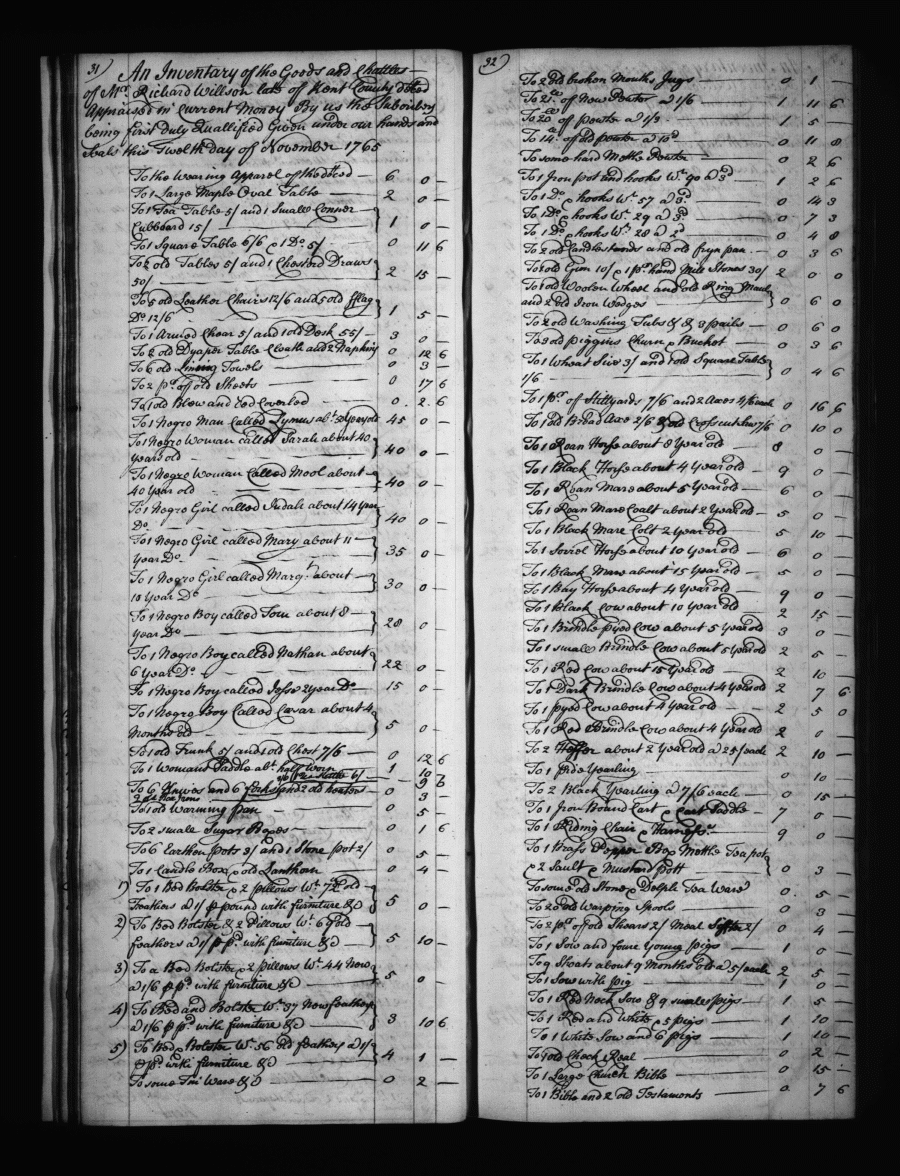 31)
An Inventory of the Goods and Chattles
of Mr. Richard Willson late of Kent County decd
Appraised in Current Money By us the Subscribers
being first Duly Quallified Given under our hands and
Seals this Twelth day of November 1765
To the Wearing Apparel of the decd — 6 0 —
To 1 Large Maple Oval Table — 2 0 —
To 1 Tea Table 5/ and 1 Small Conner
Cubboard 15/ 1 0 —
To 1 Square Table 6/6 & 1 Do. 5/ 0 11 6
To 2 old Tables 5/ and 1 Chest and Draws
50/ — 2 15 —
To 5 old Leather Chairs 12/6 and 5 old fflag
Do 12/6 — 1 5 —
To 1 Armed Chear 5/ and 1 old Desk 55/ — 3 0 —
To 2 old Dyaper Table Cloath and 2 Napkins 0 12 6
To 6 old Towels — 0 3 —
To 2 pr. off old Sheets — 0 17 6
To 1 old Blew and Red Coverled — 0 2 6
To 1 Negro Man Called abt. Years old 45 0 —
To 1 Negro Woman called Sarah about 40
Years old — 40 0 —
To 1 Negro Woman Called Mool about
40 Year old — 40 0 —
To 1 Negro Girl called Judah about 14 Year
Do — 40 0 —
To 1 Negro Girl called Mary about 11
Year Do — 35 0 —
To 1 Negro Girl called Margt. about
10 Year Do — 30 0 —
To 1 Negro Boy called Tom about 8
Year Do — 28 0 —
To 1 Negro Boy called Nathan about
6 Year Do — 22 0 —
To 1 Negro Boy called Jesse 2 year Do — 15 0 —
To 1 Negro Boy Called Cæsar about 4
Months old 5 0 —
To 1 old Trunk 5/ and 1 old Chest 7/6 — 0 12 6
To 1 Womans Saddle abt. half worn 1 10 —
6/ 9 6
To 6 Knives and 6 forks and 2 old heaters 0 3 —
To 1 old Warming pan 0 5 —
To 2 small Sugar Boxes — 0 1 6
To 6 Earthen pots 3/ and 1 Stone pot 2/ 0 5 —
To 1 Candle Box & old Lanthorn 0 4 —
1) To 1 Bed Bolster & 2 pillows Wt. old
Feathers a 1/ p pound with furniture &c 5 0 —
2) To Bed Bolster & 2 Pillows Wt. old
feathers a 1/ p pd. with furniture &c 5 10 —
3) To a Bed Bolster & 2 pillows Wt. 44 New
a 1/6 p pd. with furniture &c 5 0 —
4) To Bed and Bolster Wt. 37 New feathers
a 1/6 p pd. with furniture &c — 3 10 6
5) To Bed & Bolster Wt. 56 old feathers a 1/
p pd. with furniture &c — 4 1 —
To some Tin Ware &c — 0 2 —
32)
To 2 old broken Mouths Jugs — 0 1 —
To 21 lb of New Pewter a 1/6 1 11 6
To 20 lb of pewter a 1/3 — 1 5 —
To 14 lb of old pewter a 10d 0 11 8
To some hard Mettle Pewter — 0 2 6
To 1 Iron pot and hooks Wt. 90 a 3d 1 2 6
To 1 Do. & hooks Wt. 57 a 3d 0 14 3
To 1 Do & hooks Wt. 29 a 3d 0 7 3
To 1 Do. & hooks Wt. 28 a 2d 0 4 8
To 2 old Candlesticks and old fryn pan — 0 3 6
To 1 old Gun 10/ & 1 pr. hand Mill Stones 30/ 2 0 0
To 1 old Woolen Wheel and old Ring Maul
and 2 old Iron Wedges — 0 6 0
To 2 old Washing Tubs &c & 3 pails — 0 6 0
To 3 old piggins Churn & Bucket — 0 3 6
To 1 Wheat Sive 3/ and 1 old Square Table
1/6 — 0 4 6
To 1 pr. of Stillyards 7/6 and 2 Axes 4/6 each 0 16 6
To 1 old Broad Axe 2/6 & old Crosscut Saw 7/6 0 10 0
To 1 Roan Horse about 8 Year old 8 0 —
To 1 Black Horse about 4 Year old — 9 0 —
To 1 Roan Mare about 5 Year old — 6 0 —
To 1 Roan Mare Coalt about 2 Year old — 5 0 —
To 1 Black Mare Colt 2 Year old — 5 10 —
To 1 Sorriel Horse about 10 Year old — 6 0 —
To 1 Black Mare about 15 Year old — 5 0 —
To 1 Bay Horse about 4 Year old — 9 0 —
To 1 Black Cow about 10 Year old 2 15 —
To 1 Brindle pyed Cow about 5 Year old 3 0 —
To 1 small Brindle Cow about 5 Year old 2 5 —
To 1 Red Cow about 15 Year old — 2 10 —
To 1 Dark Brindle Cow about 4 Year old 2 7 6
To 1 pyed Cow about 4 Year old — 2 5 0
To 1 Red Brindle Cow about 4 Year old 2 0 —
To 2 Heffer about 2 Year old a 25/ each 2 10 —
To 1 pide Yearling — 0 10 —
To 2 Black Yearling a 7/6 each — 0 15 —
To 1 Iron Bound Cart & Cart Saddle — 7 0 —
To 1 Riding Chair & Harness — 9 0 —
To 1 Brass Pepper Box Mettle Tea pot
& 2 Sault & Mustard Pott — 0 3 —
To some old Stone & Delph Tea Ware 0 5 —
To 20 old Warping Spools — 0 3 —
To 2 pr. off old Shears 2/ Meal Siffter 2/ 0 4 —
To 1 Sow and foure Young pigs — 1 0 —
To 9 Shoats about 9 Months old a 5/ each 2 5 —
To 1 Sow with pig — 1 0 —
To 1 Red Neck Sow & 9 smale pigs — 1 5 —
To 1 Red and White & 5 pigs — 1 10 —
To 1 White Sow and 6 pigs — 1 10 —
To 1 old Check Real — 0 2 —
To 1 Large Church Bible — 0 15 —
To 1 Bible and 2 old Testaments — 0 7 6